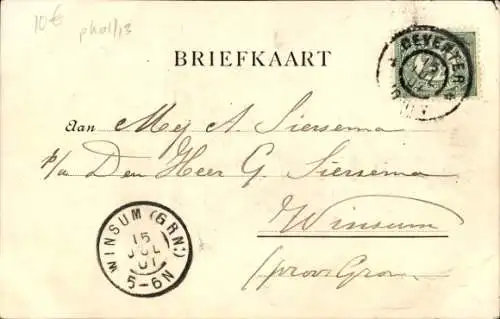 10€
phot/13
BRIEFKAART
DEVENTER
Aan Mej A. Siersema
p/a Den Heer G. Siersema
Winsum
(prov. Gron
WINSUM (GRN)
15
JUL
01
5-6N